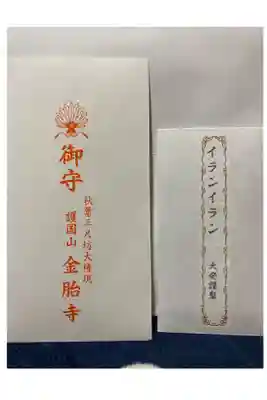 御守
秋葉三尺坊大権現
護国山 金胎寺
イランイラン
大発謹製